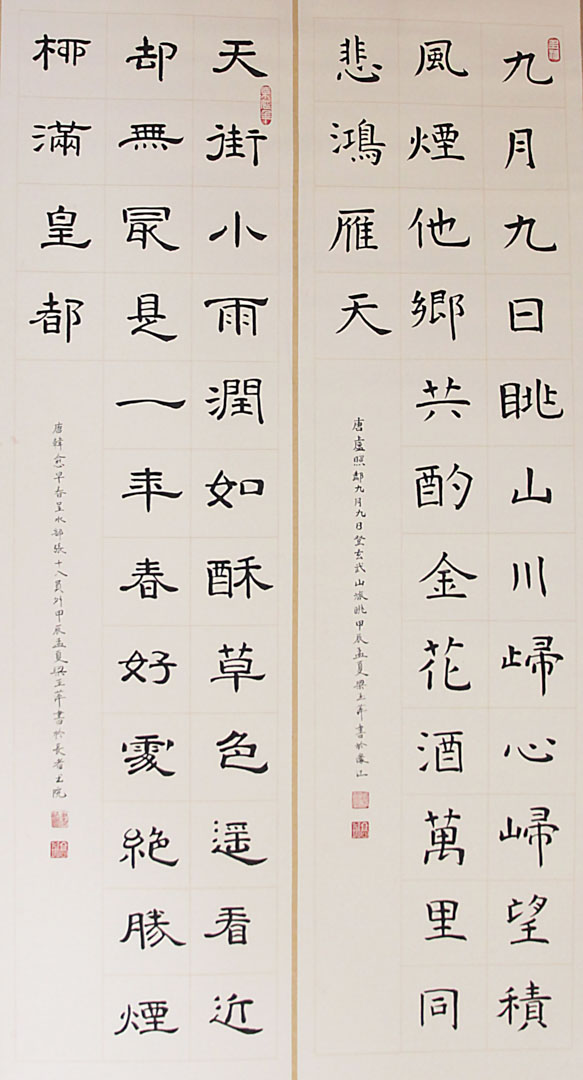 九月九日眺山川歸心歸望積
風煙他鄉共酌金花酒萬里同
悲鴻雁天
唐盧照鄰九月九日登玄武山旅眺甲辰孟夏梁玉萍書於山
天街小雨潤如酥草色遥看近
却無冣是一年春好處絶勝煙
柳滿皇都
唐韓愈早春呈水部張十八員外甲辰孟夏梁玉萍書於長者院